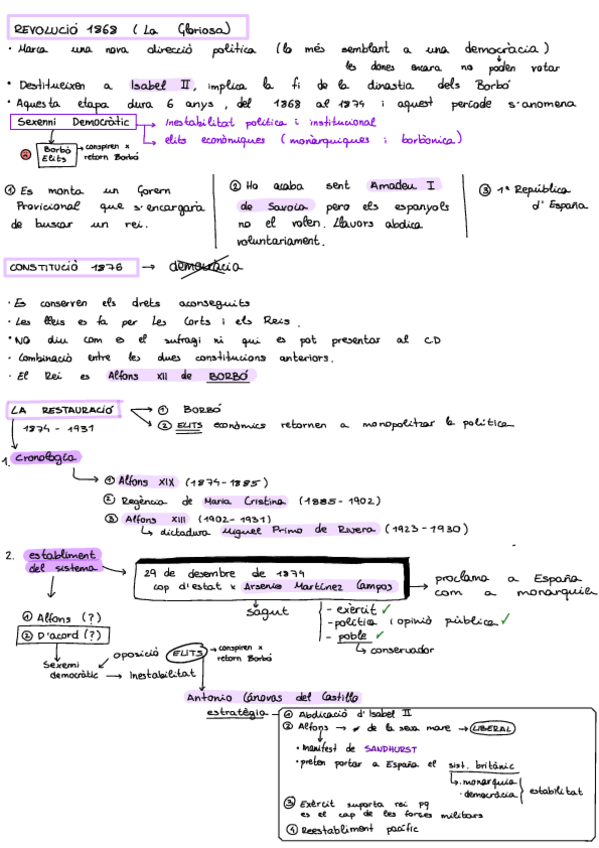 REVOLUCIÓ 1868 (La Gloriosa)
• Marca una nova direcció política (lo més semblant a una democràcia)
les dones encara no poden votar
• Destitueixen a Isabel II, implica la fi de la dinastia dels Borbó
• Aquesta etapa dura 6 anys, del 1868 al 1874 i aquest període s'anomena
Sexenni Democràtic → Inestabilitat política i institucional
→ elits econòmiques (monàrquiques i borbònica)
Borbó
Elits
→ conspiren x
retorn Borbó
① Es monta un Govern
Provicional que s'encargarà
de buscar un rei.
② Ho acaba sent Amadeu I
de Savoia pero els espanyols
no el volen. Llavors abdica
voluntariament.
③ 1ª República
d'España
CONSTITUCIÓ 1876 → democràcia
• Es conserven els drets aconseguits
• Les lleis es fa per les Corts i els Reis.
• NO diu com es el sufragi ni qui es pot presentar al CD
• Combinació entre les dues constitucions anteriors.
• El Rei es Alfons XII de BORBÓ
LA RESTAURACIÓ → ① BORBÓ
1874 - 1931 → ② ELITS econòmics retornen a monopolitzar la política
1. Cronologia
① Alfons XIX (1874-1885)
② Regència de Maria Cristina (1885-1902)
③ Alfons XIII (1902-1931)
↳ dictadura Miguel Primo de Rivera (1923-1930)
2. establiment
del sistema
29 de desembre de 1874
cop d'estat x Arsenio Martínez Campos
→ proclama a España
com a monarquia
sagut
- exèrcit ✓
- política i opinió pública ✓
- poble ✓
↳ conservador
① Alfons (?)
② D'acord (?)
Sexenni
democràtic → Inestabilitat
oposició ELITS → conspiren x
retorn Borbó
Antonio Cánovas del Castillo
estratègia
① Abdicació d'Isabel II
② Alfons → de la seva mare → LIBERAL
• manifest de SANDHURST
• preten portar a España el sist. britànic
↳ • monarquia
• democràcia
estabilitat
③ Exèrcit suporta rei pq
es el cap de les forces militars
④ Reestabliment pacífic